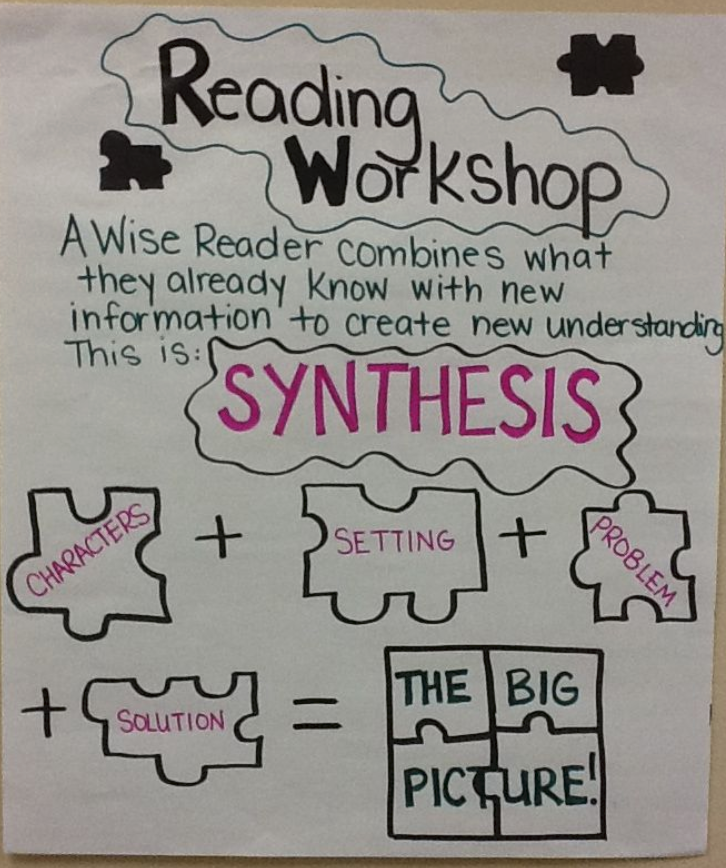 Reading
Workshop
A Wise Reader combines what
they already know with new
information to create new understanding
This is:
SYNTHESIS
CHARACTERS + SETTING + PROBLEM
+ SOLUTION = THE BIG
PICTURE!